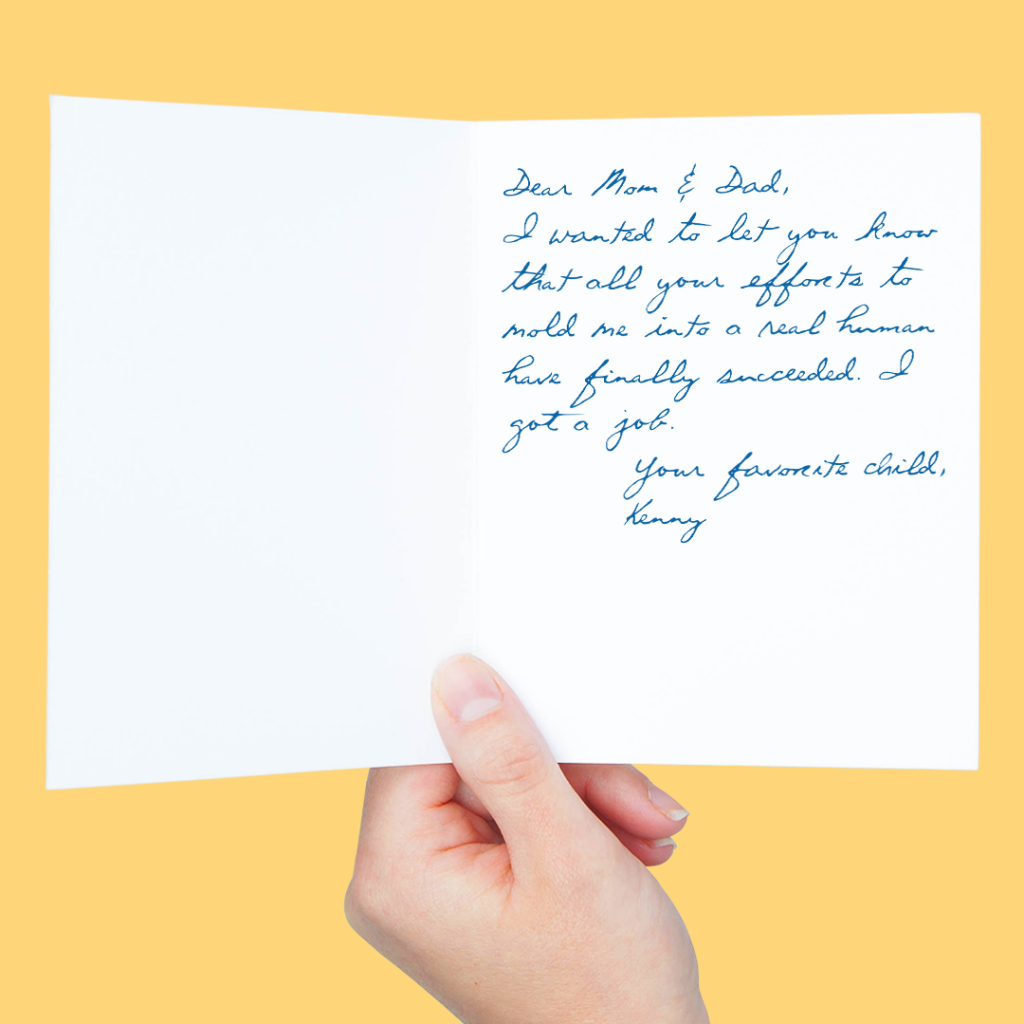 Dear Mom & Dad,
I wanted to let you know
that all your efforts to
mold me into a real human
have finally succeeded. I
got a job.
Your favorite child,
Kenny